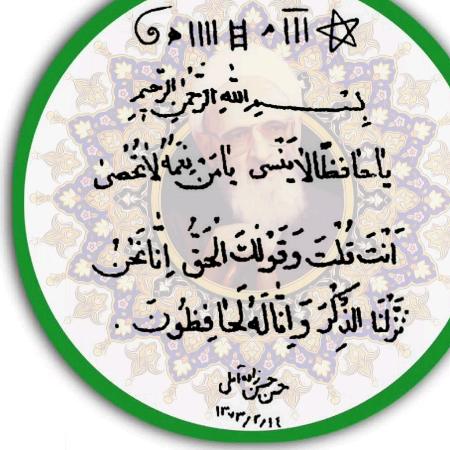 بِسْمِ اللهِ الرَّحْمٰنِ الرَّحِیمِ
یا حافِظًا لایَنْسی یا مَنْ نِعَمُهُ لاتُحْصی
اَنْتَ قُلْتَ وَ قَوْلُكَ الْحَقُّ اِنّا نَحْنُ
نَزَّلْنَا الذِّكْرَ وَ اِنّا لَهُ لَحافِظُونَ .
حسن حسن زاده آملی
۱۳۷۳/۲/۱٤